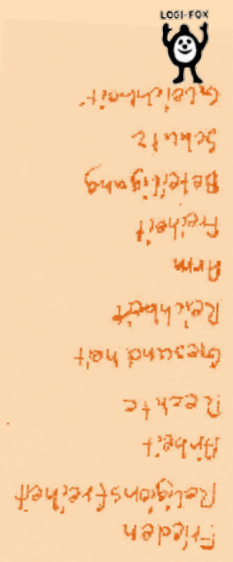 LOGI-FOX
Frieden
Religionsfreiheit
Arbeit
Rechte
Gesundheit
Reichheit
Arm
Freiheit
Beteiligung
Schutz
Gleichheit